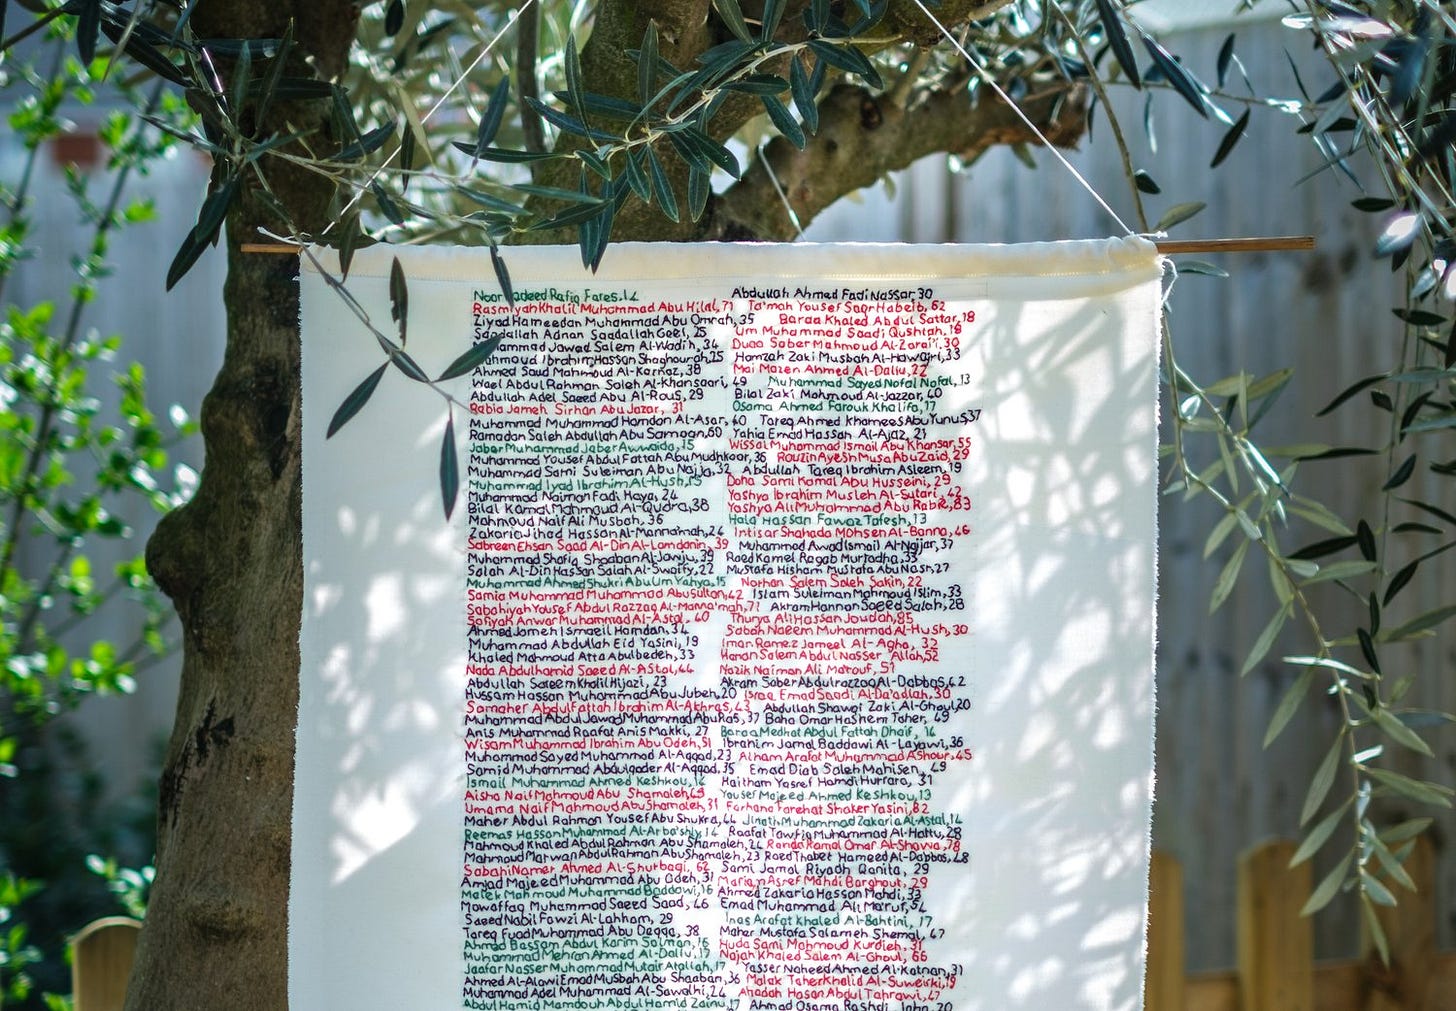 Noor Rafiq Fares, 14
Rasmiyah Khalil Muhammad Abu Hilal, 71
Ziyad Hameedan Muhammad Abu Omrah, 35
Saadallah Adnan Saadallah Geel, 25
Jawad Salem Al-Wadih, 34
Mahmoud Ibrahim Hassan Shaghourah, 25
Ahmed Saud Mahmoud Al-Karnaz, 38
Wael Abdul Rahman Saleh Al-Khansaari, 49
Abdullah Adel Saeed Abu Al-Rous, 29
Rabia Jameh Sirhan Abu Jazar, 31
Muhammad Muhammad Hamdan Al-Asar, 40
Ramadan Saleh Abdullah Abu Samogn, 60
Jaber Muhammad Jaber Awwaida, 15
Muhammad Yousef Abdul Fattah Abu Mudhkoor, 36
Muhammad Sami Suleiman Abu Najja, 32
Muhammad Iyad Ibrahim Al-Hush, 15
Muhammad Naiman Fadi Haya, 24
Bilal Kamal Mahmoud Al-Qudra, 38
Mahmoud Naif Ali Musbah, 36
Zakaria Jihad Hassan Al-Manna'mah, 26
Sabreen Ehsan Saad Al-Din Al-Lamdanin, 39
Muhammad Shafiq Shaaban Al-Jawju, 39
Salah Al-Din Hassan Salah Al-Swaity, 22
Muhammad Ahmed Shukri Abu Um Yahya, 15
Samia Muhammad Muhammad Abu Sultan, 42
Sabahiyah Yousef Abdul Razzaq Al-Manna'mah, 71
Safiyak Anwar Muhammad Al-Astal, 40
Ahmed Jameh Ismaeil Hamdan, 34
Muhammad Abdullah Eid Yasini, 19
Khaled Mahmoud Atta Abulbedeh, 33
Nada Abdulhamid Saeed Al-Astal, 44
Abdullah Saleem Khalil Hijazi, 23
Hussam Hassan Muhammad Abu Jubeh, 20
Samaher Abdul Fattah Ibrahim Al-Akhras, 43
Muhammad Abdul Jawad Muhammad Abu Ras, 37
Anis Muhammad Raafat Anis Makki, 27
Wisam Muhammad Ibrahim Abu Odeh, 51
Muhammad Sayed Muhammad Al-Aqqad, 23
Samid Muhammad Abdulqader Al-Aqqad, 35
Ismail Muhammad Ahmed Keshkou, 16
Aisha Naif Mahmoud Abu Shamaleh, 49
Umama Naif Mahmoud Abu Shamaleh, 31
Maher Abdul Rahman Yousef Abu Shukra, 44
Reemas Hassan Muhammad Al-Arba'shly, 14
Mahmoud Khaled Abdul Rahman Abu Shamaleh, 24
Mahmoud Marwan Abdul Rahman Abu Shamaleh, 23
Sabah Namer Ahmed Al-Shurbagi, 62
Amjad Majeed Muhammad Abu Odeh, 31
Malek Mahmoud Muhammad Baddawi, 16
Mowaffaq Muhammad Saeed Saad, 46
Saeed Nabil Fawzi Al-Lahham, 29
Tareq Fuad Muhammad Abu Daqqa, 38
Ahmad Bassam Abdul Karim Salman, 16
Muhammad Mehran Ahmed Al-Dallu, 17
Jaafar Nasser Muhammad Mutair Atallah, 17
Ahmed Al-Alawi Emad Musbah Abu Shaaban, 36
Muhammad Adel Muhammad Al-Sawalhi, 24
Abdul Hamid Mamdouh Abdul Hamid Zainu, 17
Abdullah Ahmed Fadi Nassar, 30
Ta'mah Yousef Saqr Habeib, 62
Baraa Khaled Abdul Sattar, 18
Um Muhammad Saadi Qushtah, 18
Duaa Saber Mahmoud Al-Zarai'i, 30
Hamzah Zaki Musbah Al-Hawajri, 33
Mai Mazen Ahmed Al-Dallu, 22
Muhammad Sayed Nofal Nofal, 13
Bilal Zaki Mahmoud Al-Jazzar, 40
Osama Ahmed Farouk Khalifa, 17
Tareq Ahmed Khamees Abu Yunus, 37
Yahia Emad Hassan Al-Ajaz, 21
Wissal Muhammad Ismail Abu Khansar, 55
Rouzin Ayesh Musa Abu Zaid, 29
Abdullah Tareq Ibrahim Asleem, 19
Doha Sami Kamal Abu Husseini, 29
Yashya Ibrahim Musleh Al-Sutari, 42
Yashya Ali Muhammad Abu Rabie, 83
Hala Hassan Fawaz Tafesh, 13
Intisar Shahada Mohsen Al-Banna, 46
Muhammad Awad Ismail Al-Najjar, 37
Raed Kamel Ragab Murtadha, 33
Mustafa Hisham Mustafa Abu Nasr, 27
Norhan Salem Saleh Sakin, 22
Islam Suleiman Mahmoud Islim, 33
Akram Hannon Saeed Salah, 28
Thurya Ali Hassan Joudah, 85
Sabah Naeem Muhammad Al-Hush, 30
Iman Ramez Jameel Al-Agha, 32
Hanan Salem Abdul Nasser Allah, 52
Nazik Naiman Ali Marouf, 51
Akram Saber Abdulrazzaq Al-Dabbas, 42
Israa Emad Saadi Al-Da'adlah, 30
Abdullah Shawqi Zaki Al-Ghoul, 20
Baha Omar Hashem Taher, 49
Baraa Medhat Abdul Fattah Dhaif, 16
Ibrahim Jamal Baddawi Al-Layawi, 36
Alham Arafat Muhammad Ashour, 45
Emad Diab Saleh Mahisen, 49
Haitham Yasref Hamdi Hurrara, 31
Yousef Majeed Ahmed Keshkou, 13
Farhana Farehat Shaker Yasini, 82
Jinath Muhammad Zakaria Al-Astal, 14
Raafat Tawfiq Muhammad Al-Hattu, 28
Randa Kamal Omar Al-Shawa, 78
Raed Thabet Hameed Al-Dabbas, 48
Sami Jamal Riyadh Qanita, 29
Mariam Asref Mahdi Barghout, 29
Ahmed Zakaria Hassan Mahdi, 33
Emad Muhammad Ali Maruf, 54
Inas Arafat Khaled Al-Bahtini, 17
Maher Mustafa Salameh Shemal, 47
Huda Sami Mahmoud Kurdieh, 31
Najah Khaled Salem Al-Ghoul, 66
Yasser Naheed Ahmed Al-Katnan, 31
Malak Taher Khalid Al-Suweirki, 19
Ahadah Hasan Abdul Tahrawi, 47
Ahmad Osama Rashdi Jaha, 20